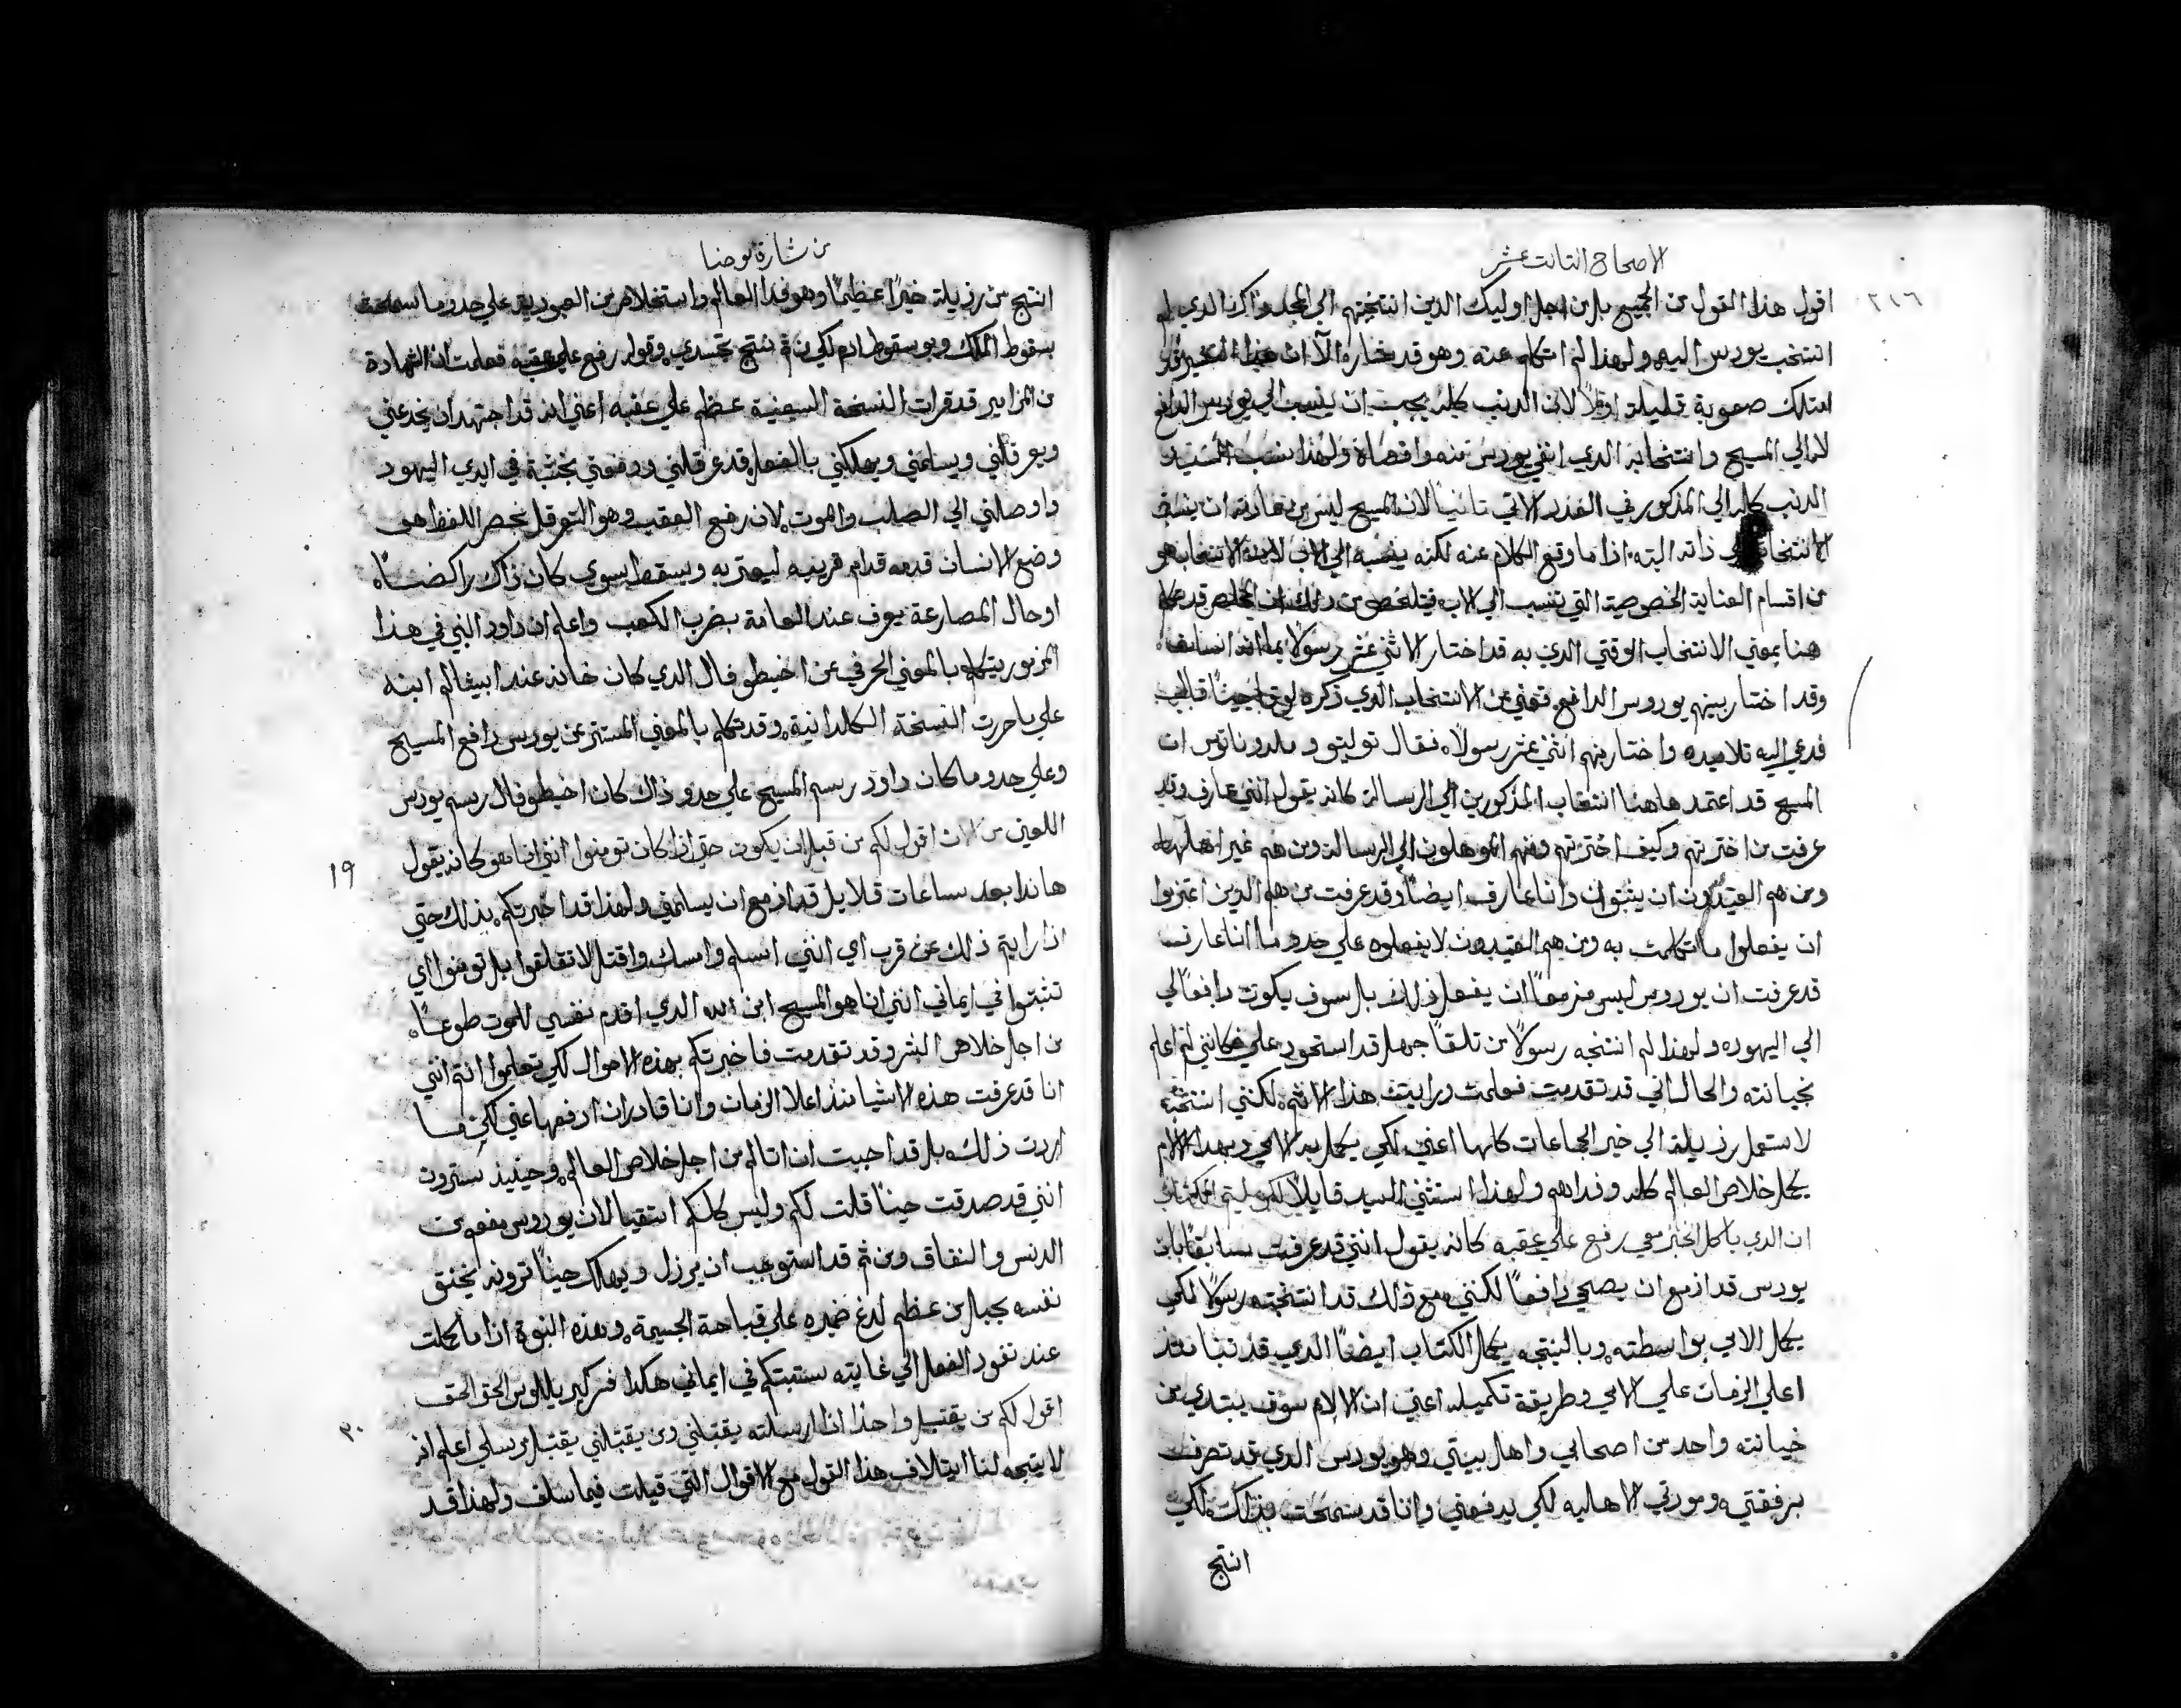 الاصحاح التالت عشر
٢١٦
اقول هذا القول من الجميع بل من اجل اوليك الدين انتخبتهم الي المجد واكن الدي لم
انتخب يودس اليه ولهذا لم اتكلم عنه وهو قد يختاره الا ان هذا قد
امتلك صعوبة قليلة اولاً لان الدنب كله يجب ان ينسب الي يودس الدافع
لا الي المسيح وانتخابه الدي انفي يودس منه واقصاه ولهذا نسب السيد
الدنب كله الي المذكور في العدد الاتي تانياً لان المسيح ليس من عادته ان ينسب
الانتخاب الي ذاته البته اذا ما وقع الكلام عنه لكنه ينسبه الي الاب لان الانتخاب هو
من اقسام العناية الخصوصية التي تنسب الي الاب فيتلخص من ذلك ان المخلص قد تكلم
هنا بمعني الانتخاب الوقتي الدي به قد اختار الاثني عشر رسولاً بما انه انسان
وقد اختار بينهم يودس الدافع فهي من الانتخاب الدي ذكره لوقا حيناً قال
فدعي اليه تلاميده واختار منهم اثني عشر رسولاً فقال توليتو و ملدوناتوس ان
المسيح قد اعتمد هاهنا انتخاب المذكورين الي الرسالة كانه يقول انني عارف وقد
عرفت من اخترتهم وكيف اخترتهم ومنهم الموهلون الي الرسالة ومن هم غير اهل لها
ومن هم العتيدون ان يثبتوا وانا عارف ايضاً وقد عرفت من هم الدين اعتزموا
ان يفعلوا ما تكلمت به ومن هم العتيدون لا يفعلوه علي حدو ما انا عارف
قد عرفت ان يودس ليس مزمعاً ان يفعل ذلك بل سوف يكون دافعاً لي
الي اليهود ولهذا لم انتخبه رسولاً من تلقا جهل قد استحود علي فكانني لم اعلم
بخيانته والحال اني قد تقدمت فعلمت ورايت هذا الاثم لكنني انتخبته
لاستعمل رذيلته الي خير الجماعات كلها اعني لكي يكمل به الامي وبهذا الالام
يكمل خلاص العالم كله وفداهم ولهذا استثني السيد قايلاً لكن ليتم الكتاب
ان الدي ياكل الخبز معي رفع علي عقبه كانه يقول انني قد عرفت سابقاً بان
يودس قد ازمع ان يصحي دافعاً لكنني مع ذلك قد انتخبته رسولاً لكي
يكمل الامي بواسطته وبالنتيجه يكمل الكتاب ايضاً الدي قد تنبا مند
اعلي الزمان علي الامي وطريقة تكميله اعني ان الالام سوف يبتدي من
خيانته واحد من اصحابي واهل بيتي وهو يودس الدي قد تصرف
برفقتي ومودتي الاهليه لكي يدفعني وانا قد سمحت بذلك لكي
انتج
من بشارة يوحنا
انتج من رذيلته خيراً عظيماً وهو فدا العالم واستخلاص من العبودية علي حدو ما سمحت
بسقوط الملك وبوسقوط ادم لكي من ثم ننتج تجسدي وقوله رفع علي عقبه فعلمت ان الشهادة
من المزامير قد قرات النسخة السبعينية عظم علي عقبه اعني انه قد اجتهد ان يخدعني
ويعرقلني ويسلمني ويهلكني بالفعل قد عرقلني ودفعني بخبثه في ايدي اليهود
واوصلني الي الصلب والموت لان رفع العقب وهو التعرقل بحصر اللفظ هو
وضع الانسان قدمه قدام قرينه ليعتر به ويسقط سوي كان ذاك راكضاً
او حال المصارعة يعرف عند العامة بضرب الكعب واعلم ان داود النبي في هذا
المزبور يتكلم بالمعني الحرفي عن اخيطوفال الدي كان خانه عند ابيشالم ابنه
علي ما حررت النسخة الكلدانية وقد تكلم بالمعني المستتر عن يودس دافع المسيح
وعلي حدو ما كان داود رسم المسيح علي حدو ذاك كان اخيطوفال رسم يودس
اللعين من الان اقول لكم من قبل ان يكون حتي اذا كان تومنوا انني انا هو كانه يقول
١٩
هاندا بعد ساعات قلايل قد ازمع ان يسلمني ولهذا قد اخبرتكم بذلك حتي
اذا رايتم ذلك عن قرب اي انني اسلم وامسك واقتل لا تقلقوا بل تومنوا اي
تثبتوا في ايماني انني انا هو المسيح ابن الله الدي اقدم نفسي للموت طوعاً
من اجل خلاص البشر وقد تقدمت فاخبرتكم بهذه الاحوال لكي تعلموا انتم انني
انا قد عرفت هذه الاشيا مند اعلا الزمان وانا قادر ان ادفعها عني لكن ما
اردت ذلك بل قد احببت ان اتالم من اجل خلاص العالم وحينيد سترون
انني قد صدقت حيناً قلت لكم وليس كلكم انتقيا لان يودس مفعم من
الدنس والنفاق ومن ثم قد استوجب ان يرزل ويهلك حيناً ترونه يختنق
نفسه بحبل من عظم لدغ ضميره علي قباحة الجسيمة وهذه النبوة اذا ما كملت
عند نفود الفعل الي غايته ستثبتكم في ايماني هكدا فم كيرياللوس الحق الحق
اقول لكم من يقتبل واحداً ادا ارسلته يقبلني ومن يقبلني يقتبل مرسلي اعلم انه
٢٠
لا يتجه لنا ايتلاف هذا القول مع الاقوال التي قيلت فيما سلف ولهذا قد